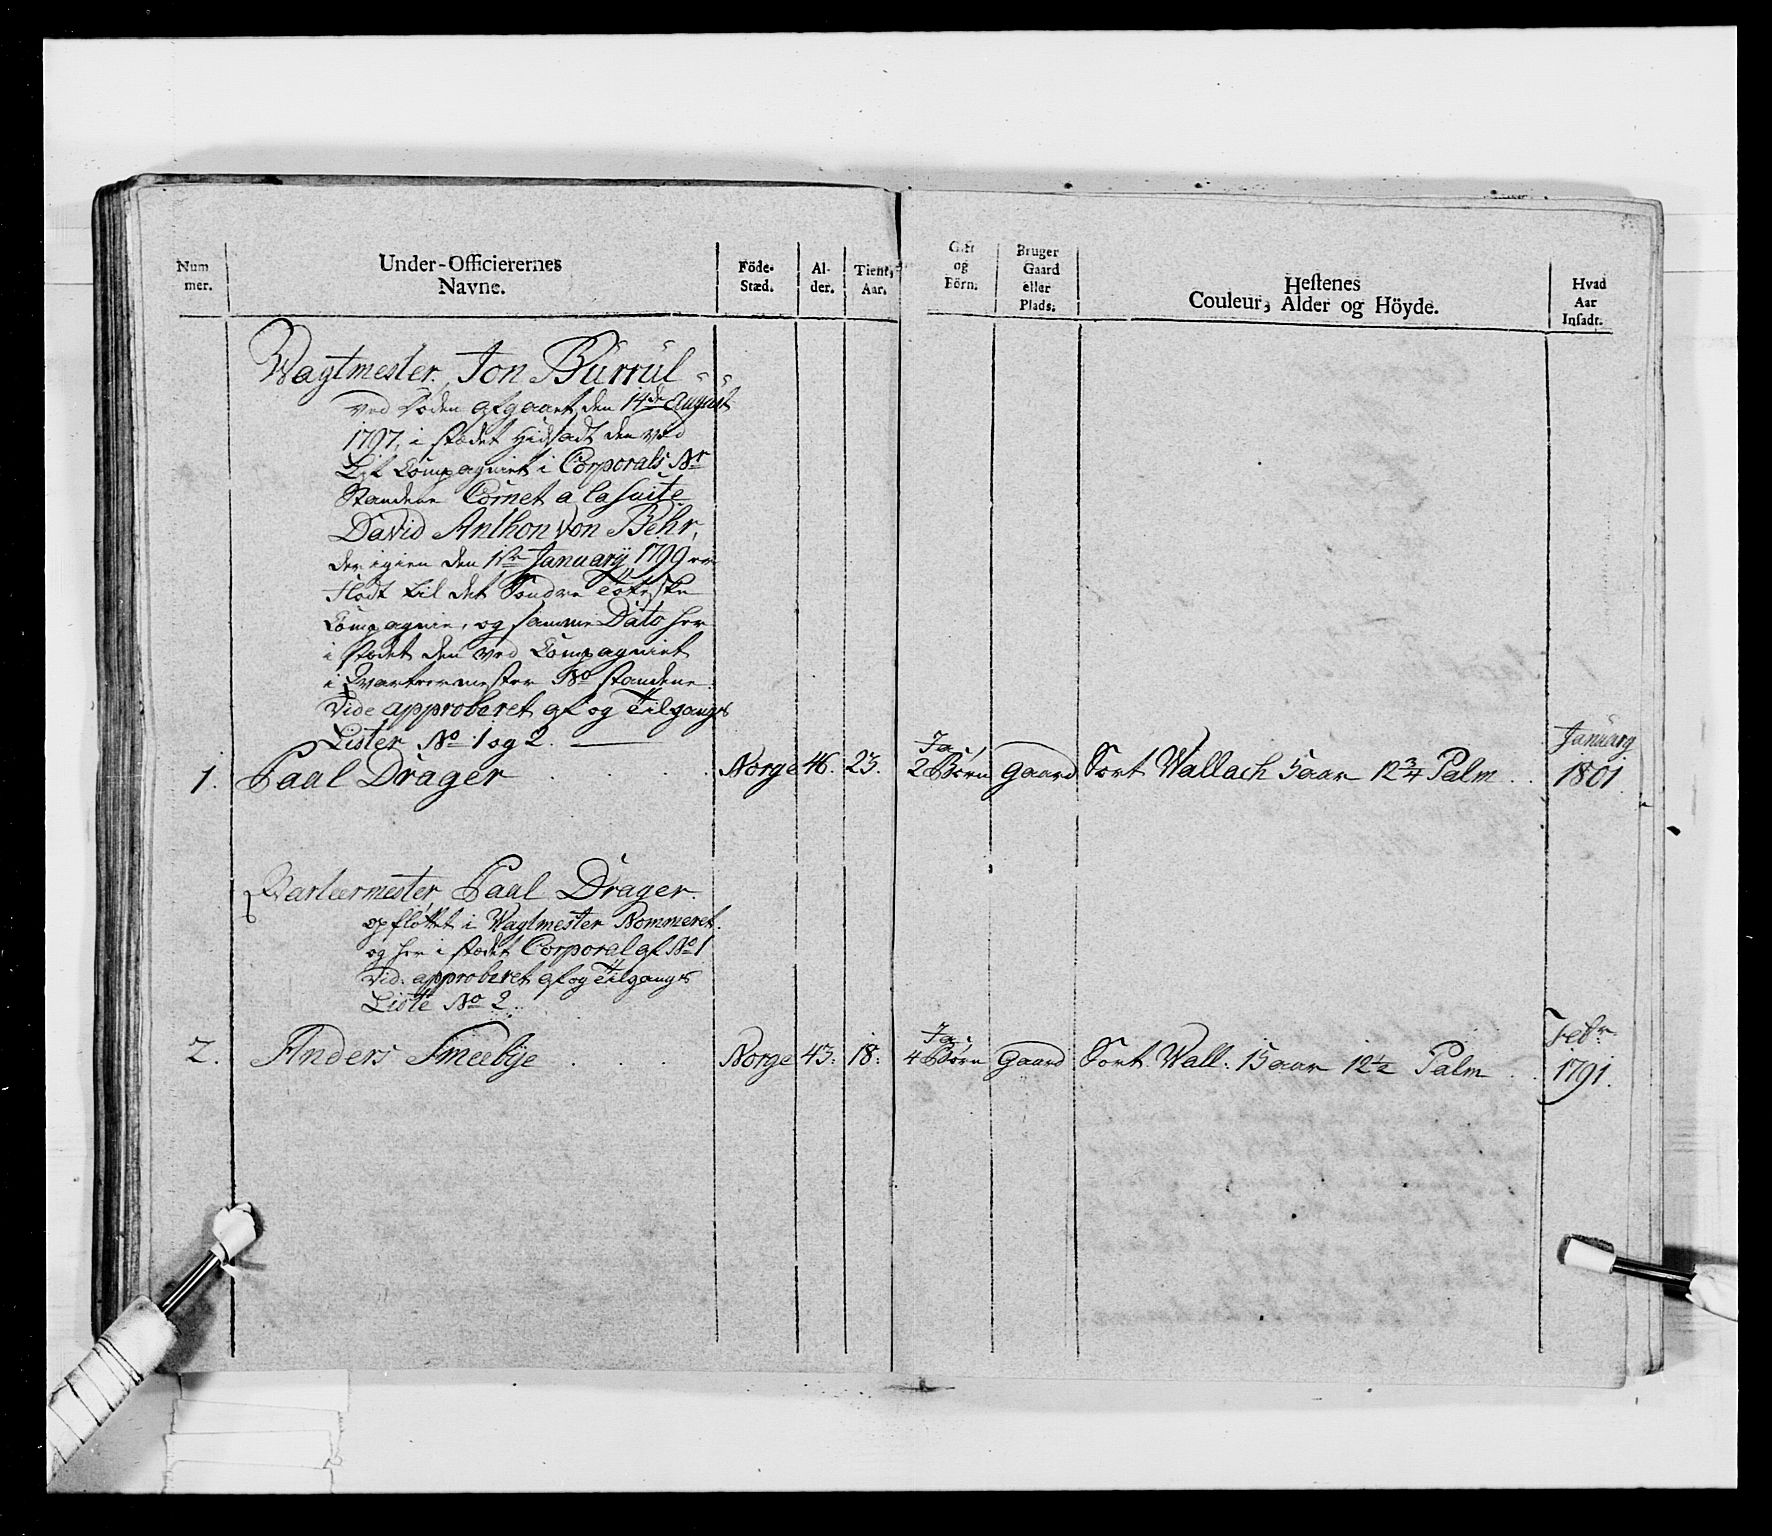 Num mer.	Under-Officierernes Navne.	Föde-Stæd.	Al-der.	Tient, Aar.	Gift og Börn.	Bruger Gaard eller Plads.	Hestenes Couleur, Alder og Höyde.	Hvad Aar Insadt.
Wagtmester Jon Burrul
ved Döden afgaaet den 14de August
1797, i stædet hidsadt den ved
Lif Compagniet i Corporals Nr
Standene Cornet a la suite
David Anthon von Behr,
der igien den 1ste January 1799 er
flödt til det Söndre
Compagnie, og samme Dato her
i stædet den ved Compagniet
i Qvarteermester No standene
Vide approberet af og Tilgangs
Lister No 1 og 2.
1. Paal Drager Norge 46. 23. Ja 2 Börn Gaard Sort Wallach 5 aar 12 3/4 Palm January 1801
Qvarteermester Paal Drager.
opflöttet i Wagtmester Nommeret.
og her i stædet Corporal af No 1
Vid. approberet af og Tilgangs
Liste No 2.
2. Anders Smeebye Norge 43: 18: Ja 4 Börn Gaard Sort Wall: 15 aar 12 1/2 Palm Febr 1791.